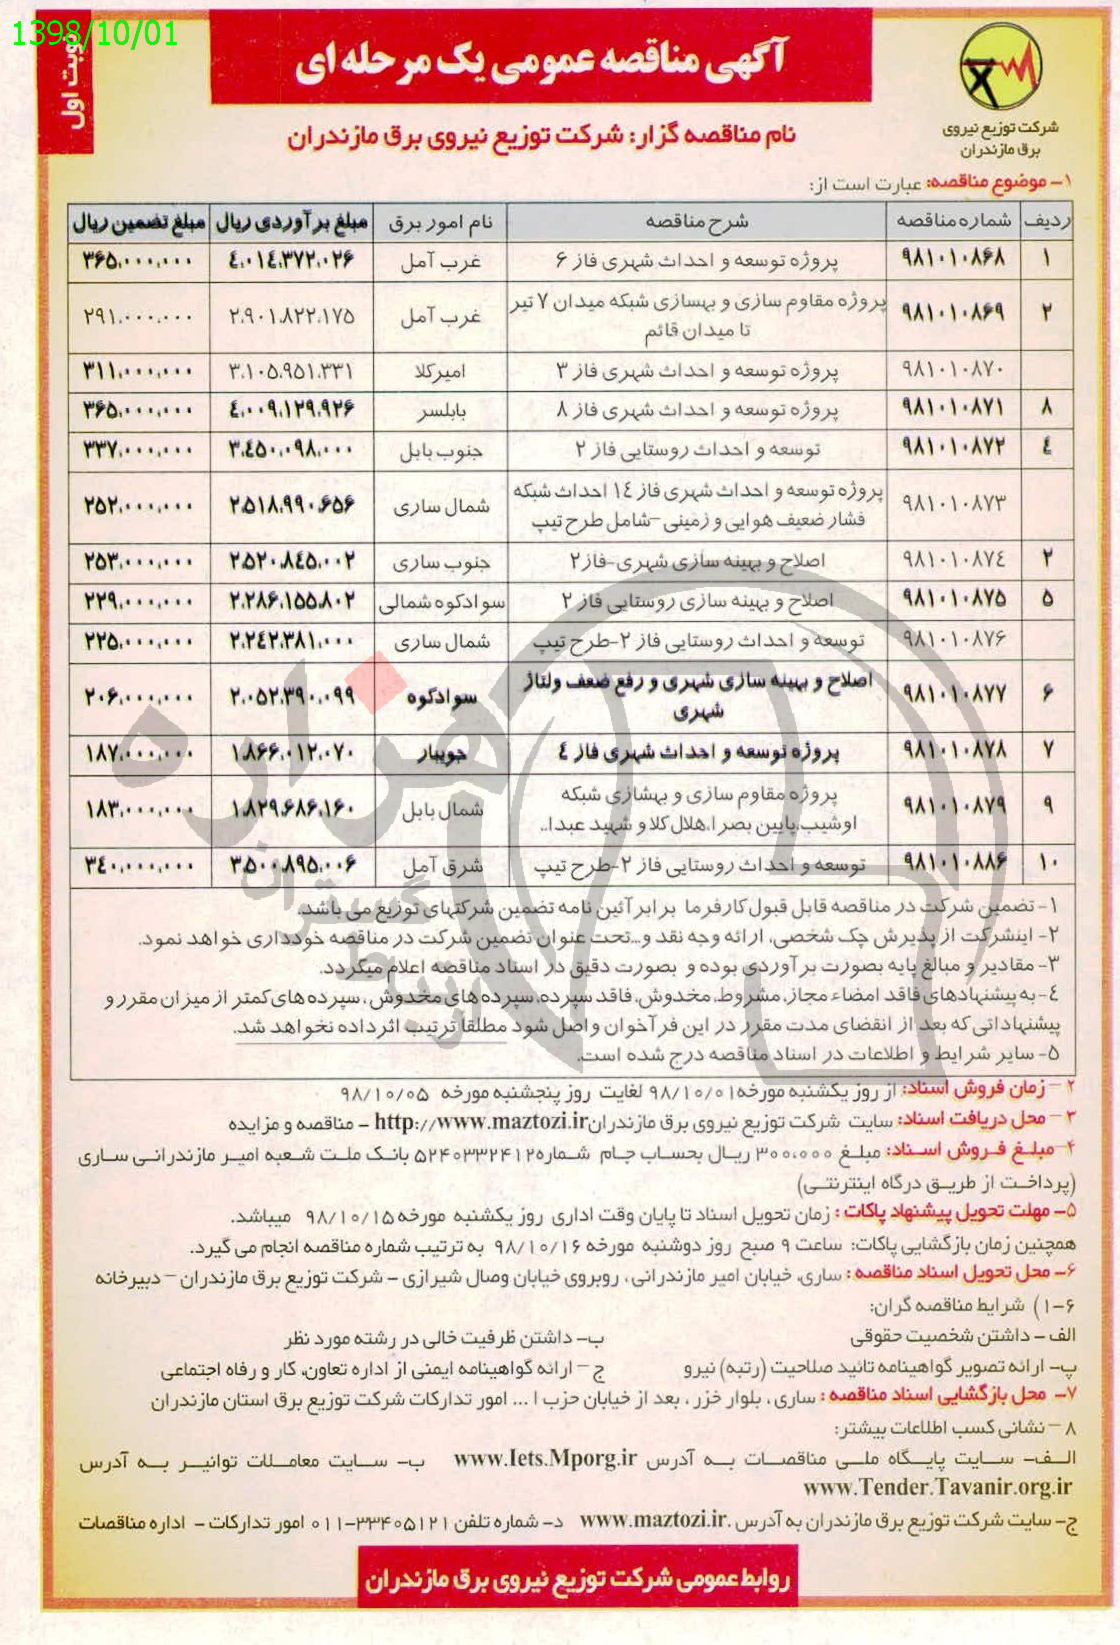 1398/10/01
نوبت اول
آگهی مناقصه عمومی یک مرحله ای
شرکت توزیع نیروی
برق مازندران
نام مناقصه گزار: شرکت توزیع نیروی برق مازندران
۱- موضوع مناقصه: عبارت است از:
ردیف شماره مناقصه شرح مناقصه نام امور برق مبلغ برآوردی ریال مبلغ تضمین ریال
۱ ۹۸۱۰۱۰۸۶۸ پروژه توسعه و احداث شهری فاز ۶ غرب آمل ۴،۰۱۴،۳۷۲،۰۲۶ ۳۶۵،۰۰۰،۰۰۰
۲ ۹۸۱۰۱۰۸۶۹ پروژه مقاوم سازی و بهسازی شبکه میدان ۷ تیر تا میدان قائم غرب آمل ۲،۹۰۱،۸۲۲،۱۷۵ ۲۹۱،۰۰۰،۰۰۰
۹۸۱۰۱۰۸۷۰ پروژه توسعه و احداث شهری فاز ۳ امیرکلا ۳،۱۰۵،۹۵۱،۳۳۱ ۳۱۱،۰۰۰،۰۰۰
۸ ۹۸۱۰۱۰۸۷۱ پروژه توسعه و احداث شهری فاز ۸ بابلسر ۴،۰۰۹،۱۲۹،۹۲۶ ۳۶۵،۰۰۰،۰۰۰
۴ ۹۸۱۰۱۰۸۷۲ توسعه و احداث روستایی فاز ۲ جنوب بابل ۳،۴۵۰،۰۹۸،۰۰۰ ۳۳۷،۰۰۰،۰۰۰
۹۸۱۰۱۰۸۷۳ پروژه توسعه و احداث شهری فاز ۱۴ احداث شبکه فشار ضعیف هوایی و زمینی -شامل طرح تیپ شمال ساری ۲،۵۱۸،۹۹۰،۶۵۶ ۲۵۲،۰۰۰،۰۰۰
۲ ۹۸۱۰۱۰۸۷۴ اصلاح و بهینه سازی شهری-فاز۲ جنوب ساری ۲،۵۲۰،۸۴۵،۰۰۲ ۲۵۳،۰۰۰،۰۰۰
۵ ۹۸۱۰۱۰۸۷۵ اصلاح و بهینه سازی روستایی فاز ۲ سوادکوه شمالی ۲،۲۸۶،۱۵۵،۸۰۲ ۲۲۹،۰۰۰،۰۰۰
۹۸۱۰۱۰۸۷۶ توسعه و احداث روستایی فاز ۲-طرح تیپ شمال ساری ۲،۲۴۲،۳۸۱،۰۰۰ ۲۲۵،۰۰۰،۰۰۰
۶ ۹۸۱۰۱۰۸۷۷ اصلاح و بهینه سازی شهری و رفع ضعف ولتاژ شهری سوادکوه ۲،۰۵۲،۳۹۰،۰۹۹ ۲۰۶،۰۰۰،۰۰۰
۷ ۹۸۱۰۱۰۸۷۸ پروژه توسعه و احداث شهری فاز ۴ جویبار ۱،۸۶۶،۰۱۲،۰۷۰ ۱۸۷،۰۰۰،۰۰۰
۹ ۹۸۱۰۱۰۸۷۹ پروژه مقاوم سازی و بهسازی شبکه اوشیب،پایین بصرا،هلال کلا و شهید عبدا.. شمال بابل ۱،۸۲۹،۶۸۶،۱۶۰ ۱۸۳،۰۰۰،۰۰۰
۱۰ ۹۸۱۰۱۰۸۸۶ توسعه و احداث روستایی فاز ۲-طرح تیپ شرق آمل ۳،۵۰۰،۸۹۵،۰۰۶ ۳۴۰،۰۰۰،۰۰۰
۱- تضمین شرکت در مناقصه قابل قبول کارفرما برابر آئین نامه تضمین شرکتهای توزیع می باشد.
۲- اینشرکت از پذیرش چک شخصی، ارائه وجه نقد و...تحت عنوان تضمین شرکت در مناقصه خودداری خواهد نمود.
۳- مقادیر و مبالغ پایه بصورت برآوردی بوده و بصورت دقیق در اسناد مناقصه اعلام میگردد.
۴- به پیشنهادهای فاقد امضاء مجاز،مشروط،مخدوش،فاقد سپرده،سپرده های مخدوش،سپرده های کمتر از میزان مقرر و
پیشنهاداتی که بعد از انقضای مدت مقرر در این فرآخوان واصل شود مطلقا ترتیب اثر داده نخواهد شد.
۵- سایر شرایط و اطلاعات در اسناد مناقصه درج شده است.
۲- زمان فروش اسناد: از روز یکشنبه مورخه ۹۸/۱۰/۰۱ لغایت روز پنجشنبه مورخه ۹۸/۱۰/۰۵
۳- محل دریافت اسناد: سایت شرکت توزیع نیروی برق مازندران http://www.maztozi.ir - مناقصه و مزایده
۴- مبلغ فروش اسناد: مبلغ ۳۰۰،۰۰۰ ریال بحساب جام شماره ۵۲۴۰۳۳۲۴۱۲ بانک ملت شعبه امیر مازندرانی ساری
(پرداخت از طریق درگاه اینترنتی)
۵- مهلت تحویل پیشنهاد پاکات: زمان تحویل اسناد تا پایان وقت اداری روز یکشنبه مورخه ۹۸/۱۰/۱۵ میباشد.
همچنین زمان بازگشایی پاکات: ساعت ۹ صبح روز دوشنبه مورخه ۹۸/۱۰/۱۶ به ترتیب شماره مناقصه انجام می گیرد.
۶- محل تحویل اسناد مناقصه: ساری، خیابان امیر مازندرانی، روبروی خیابان وصال شیرازی - شرکت توزیع برق مازندران - دبیرخانه
۶-۱) شرایط مناقصه گران:
الف - داشتن شخصیت حقوقی ب- داشتن ظرفیت خالی در رشته مورد نظر
پ- ارائه تصویر گواهینامه تائید صلاحیت (رتبه) نیرو ج- ارائه گواهینامه ایمنی از اداره تعاون، کار و رفاه اجتماعی
۷- محل بازگشایی اسناد مناقصه: ساری، بلوار خزر، بعد از خیابان حزب ا... امور تدارکات شرکت توزیع برق استان مازندران
۸- نشانی کسب اطلاعات بیشتر:
الف- سایت پایگاه ملی مناقصات به آدرس www.Iets.Mporg.ir ب- سایت معاملات توانیر به آدرس
www.Tender.Tavanir.org.ir
ج- سایت شرکت توزیع برق مازندران به آدرس www.maztozi.ir. د- شماره تلفن ۳۳۴۰۵۱۲۱-۰۱۱ امور تدارکات - اداره مناقصات
روابط عمومی شرکت توزیع نیروی برق مازندران